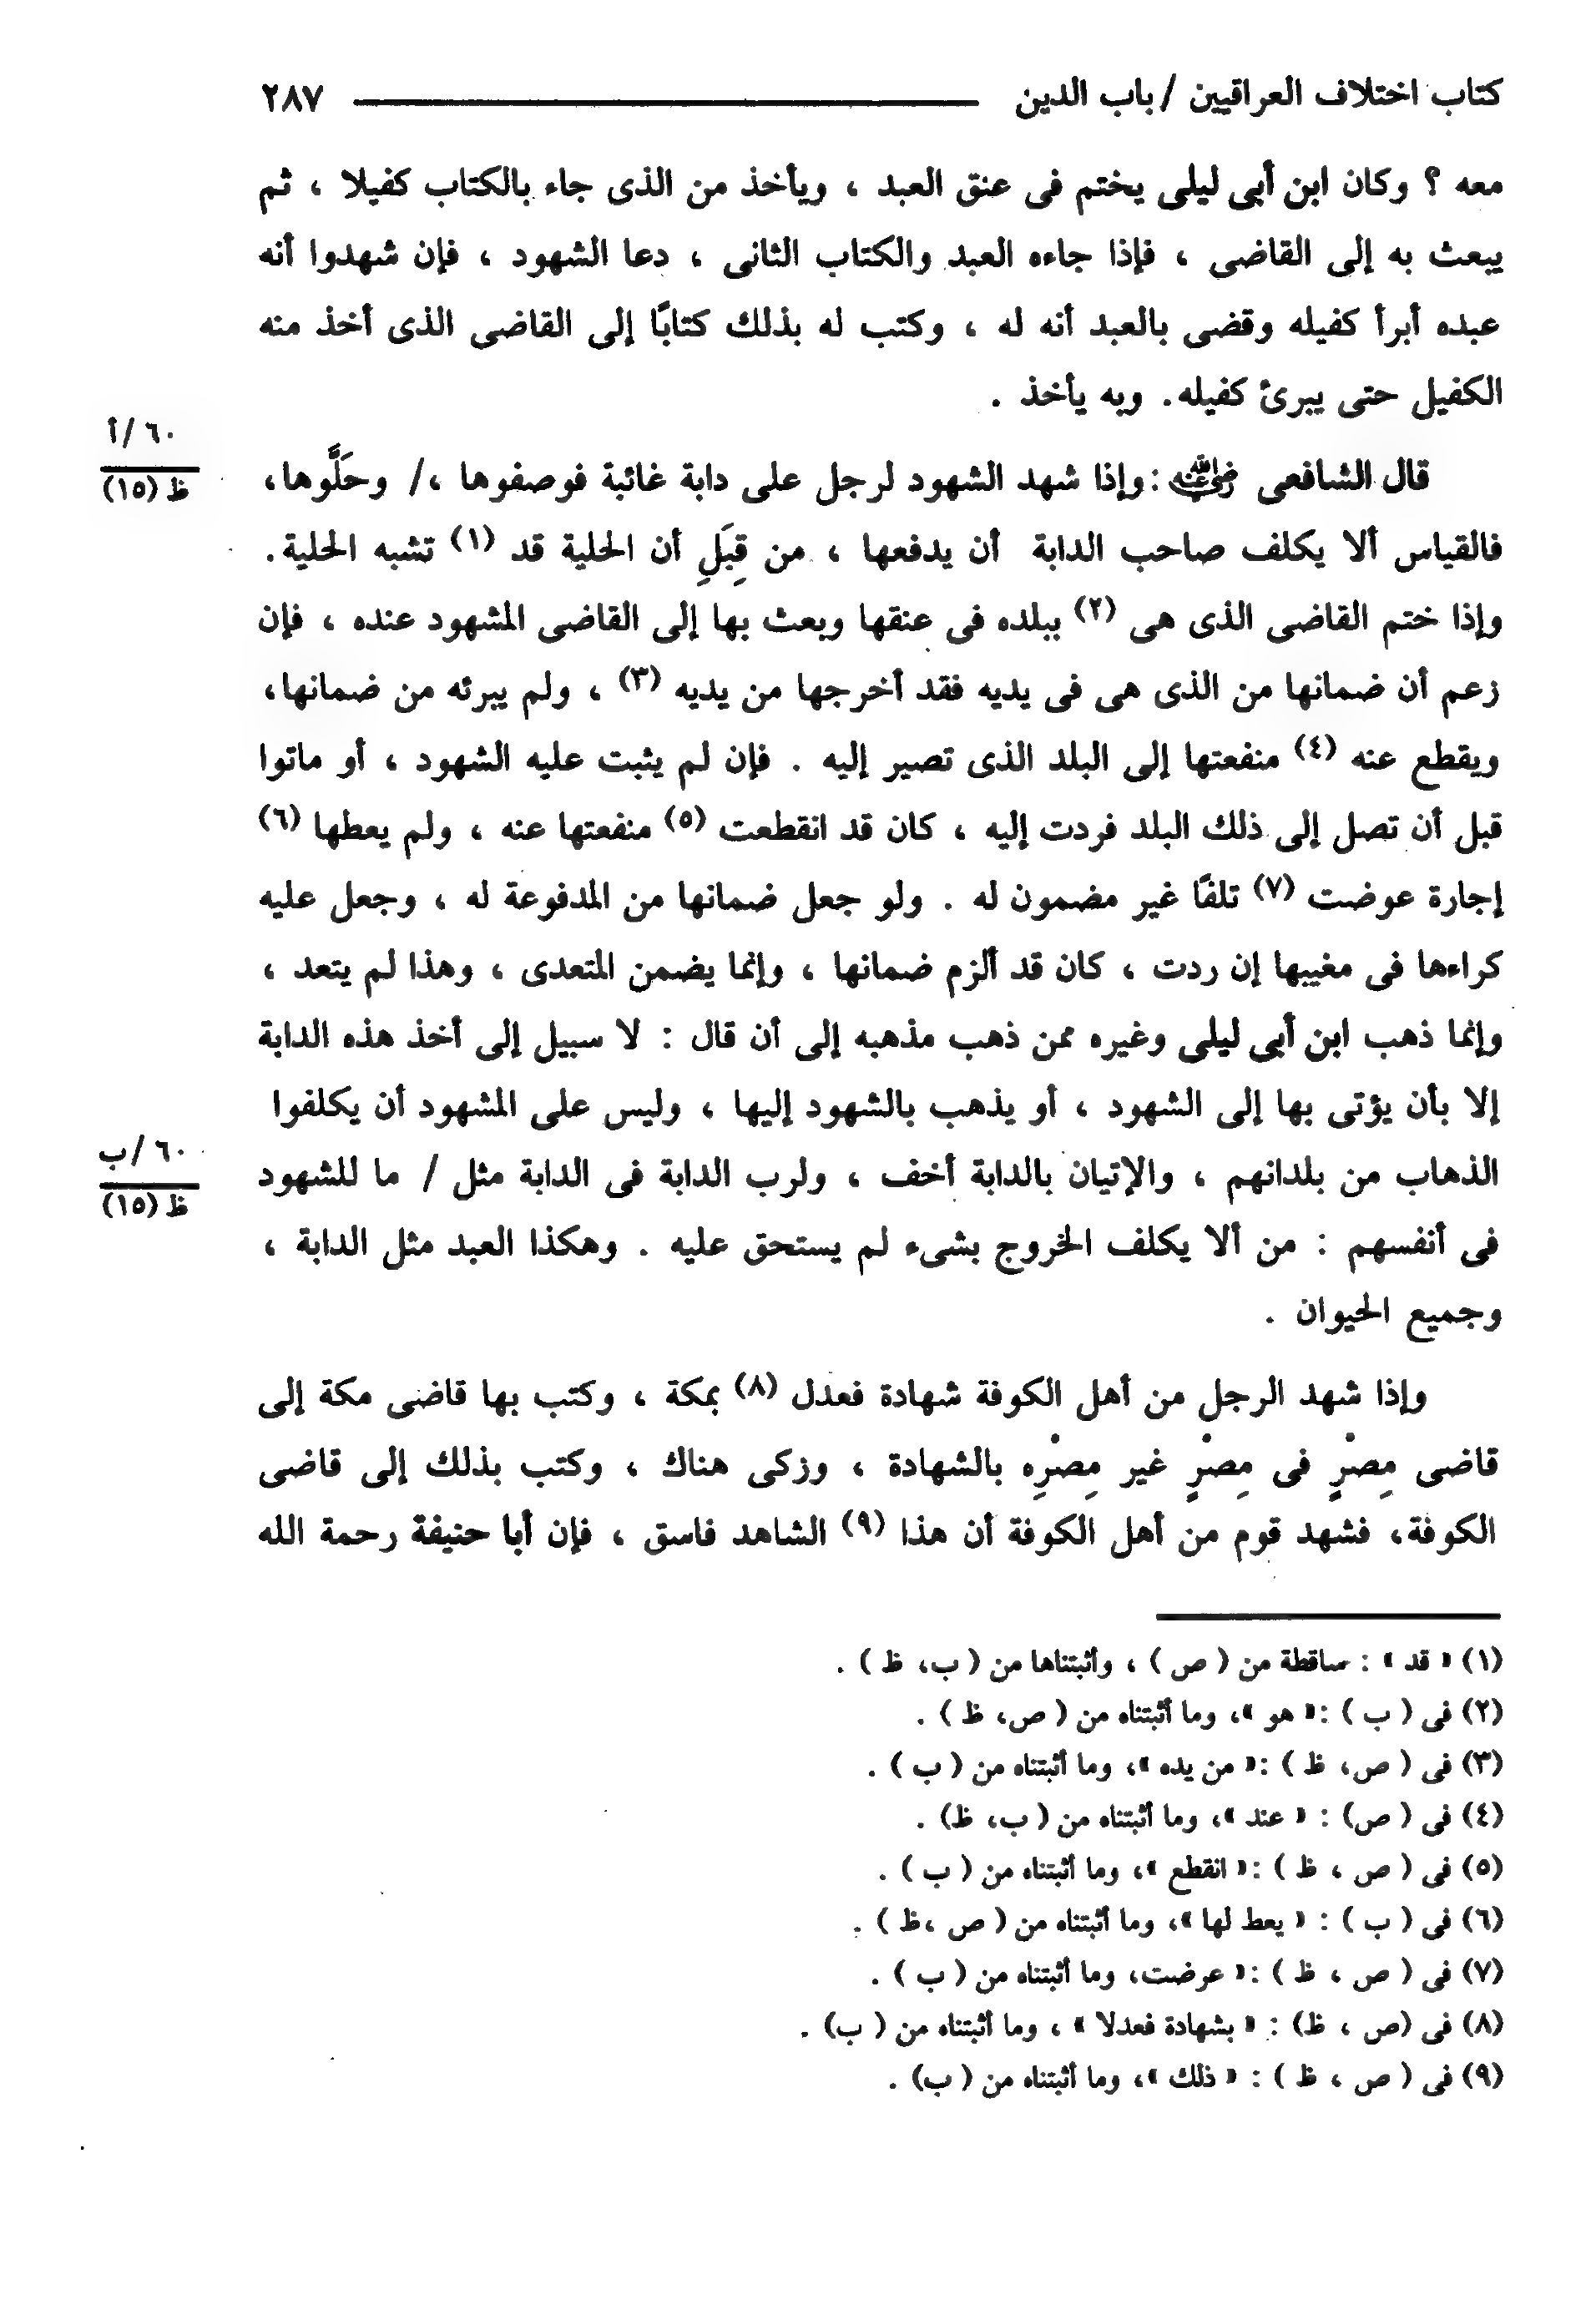 كتاب اختلاف العراقيين / باب الدين ٢٨٧
معه ؟ وكان ابن أبى ليلى يختم فى عنق العبد ، ويأخذ من الذى جاء بالكتاب كفيلا ، ثم
يبعث به إلى القاضى ، فإذا جاءه العبد والكتاب الثانى ، دعا الشهود ، فإن شهدوا أنه
عبده أبرأ كفيله وقضى بالعبد أنه له ، وكتب له بذلك كتابًا إلى القاضى الذى أخذ منه
الكفيل حتى يبرئ كفيله. وبه يأخذ .
٦٠ /أ
ظ (١٥)
قال الشافعى رضي الله عنه : وإذا شهد الشهود لرجل على دابة غائبة فوصفوها ،/ وحَلَّوها،
فالقياس ألا يكلف صاحب الدابة أن يدفعها ، من قِبَلِ أن الحلية قد (١) تشبه الحلية.
وإذا ختم القاضى الذى هى (٢) ببلده فى عنقها وبعث بها إلى القاضى المشهود عنده ، فإن
زعم أن ضمانها من الذى هى فى يديه فقد أخرجها من يديه (٣) ، ولم يبرئه من ضمانها،
ويقطع عنه (٤) منفعتها إلى البلد الذى تصير إليه . فإن لم يثبت عليه الشهود ، أو ماتوا
قبل أن تصل إلى ذلك البلد فردت إليه ، كان قد انقطعت (٥) منفعتها عنه ، ولم يعطها (٦)
إجارة عوضت (٧) تلفًا غير مضمون له . ولو جعل ضمانها من المدفوعة له ، وجعل عليه
كراءها فى مغيبها إن ردت ، كان قد ألزم ضمانها ، وإنما يضمن المتعدى ، وهذا لم يتعد ،
وإنما ذهب ابن أبى ليلى وغيره ممن ذهب مذهبه إلى أن قال : لا سبيل إلى أخذ هذه الدابة
إلا بأن يؤتى بها إلى الشهود ، أو يذهب بالشهود إليها ، وليس على المشهود أن يكلفوا
الذهاب من بلدانهم ، والإتيان بالدابة أخف ، ولرب الدابة فى الدابة مثل / ما للشهود
٦٠ /ب
ظ (١٥)
فى أنفسهم : من ألا يكلف الخروج بشىء لم يستحق عليه . وهكذا العبد مثل الدابة ،
وجميع الحيوان .
وإذا شهد الرجل من أهل الكوفة شهادة فعدل (٨) بمكة ، وكتب بها قاضى مكة إلى
قاضى مِصْرٍ فى مِصْرٍ غير مِصْرِه بالشهادة ، وزكى هناك ، وكتب بذلك إلى قاضى
الكوفة، فشهد قوم من أهل الكوفة أن هذا (٩) الشاهد فاسق ، فإن أبا حنيفة رحمة الله
(١) « قد » : ساقطة من ( ص ) ، وأثبتناها من ( ب، ظ ) .
(٢) فى ( ب ) :« هو »، وما أثبتناه من ( ص، ظ ) .
(٣) فى ( ص، ظ ) :« من يده »، وما أثبتناه من ( ب ) .
(٤) فى ( ص) : « عند »، وما أثبتناه من ( ب، ظ) .
(٥) فى ( ص ، ظ ) :« انقطع »، وما أثبتناه من ( ب ) .
(٦) فى ( ب ) : « يعط لها »، وما أثبتناه من ( ص ،ظ ) .
(٧) فى ( ص ، ظ ) :« عرضت، وما أثبتناه من ( ب ) .
(٨) فى (ص ، ظ) : « بشهادة فعدلا » ، وما أثبتناه من ( ب) .
(٩) فى ( ص ، ظ ) : « ذلك »، وما أثبتناه من ( ب) .